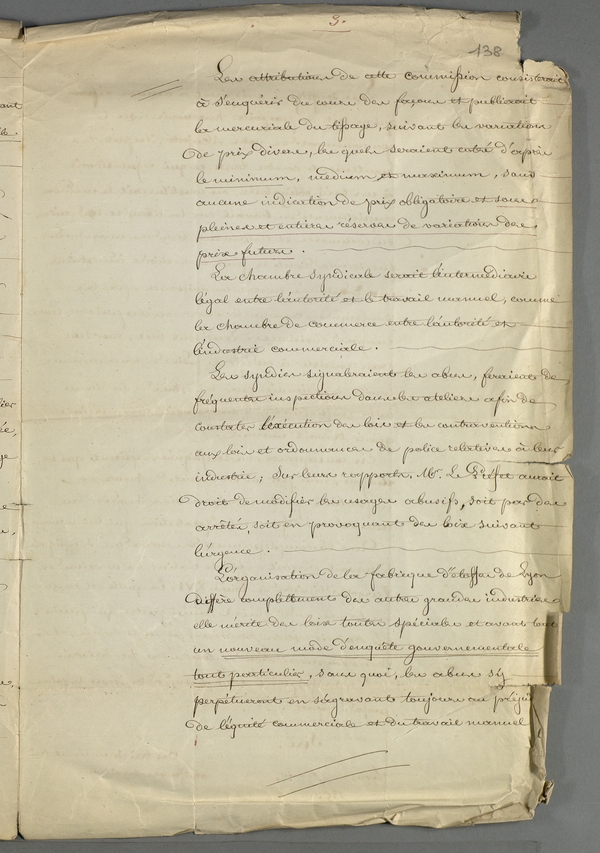 3.
138
Les attributions de cette commission consisterait
à s'enquérir du cours des façons et publierait
la mercuriale du tissage, suivant les variations
de prix divers, les quels seraient cotés d'après
le minimum, médium et maximum, sans
aucune indication de prix obligatoire et sous
pleines et entières réserves de variations des
prix futurs.
La chambre syndicale serait l'intermédiaire
légal entre l'autorité et le travail manuel, comme
la chambre de commerce entre l'autorité et
l'industrie commerciale.
Les syndics signaleraient les abus, feraient de
fréquentes inspections dans les ateliers afin de
constater l'exécution des lois et les contraventions
aux lois et ordonnances de police relatives à leur
industrie; sur leurs rapports, Mr. Le Préfet aurait
droit de modifier les usages abusifs, soit par des
arrêtés, soit en provoquant des lois suivant
l'urgence.
L'organisation de la fabrique d'étoffes de Lyon
diffère complettement des autres grandes industries
elle mérite des lois toutes spéciales et avant tout
un nouveau mode d'enquête gouvernementale
tout particulier, sans quoi, les abus s'y
perpétueront en s'aggravant toujours au préju
de l'équité commerciale et du travail manuel